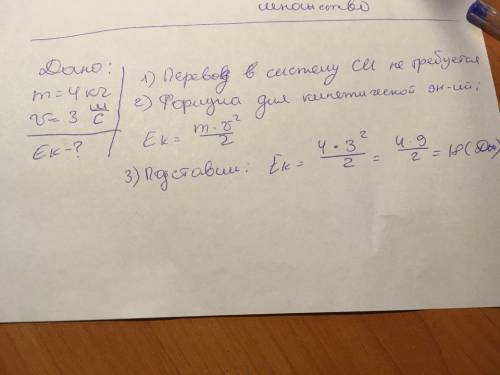 множество
Дано:
m = 4 кг
v = 3 м/с
Eк - ?
1) Перевод в систему СИ не требуется
2) Формула для кинетической эн-ии:
Eк = m·v²/2
3) Подставим: Eк = 4·3²/2 = 4·9/2 = 18 (Дж)